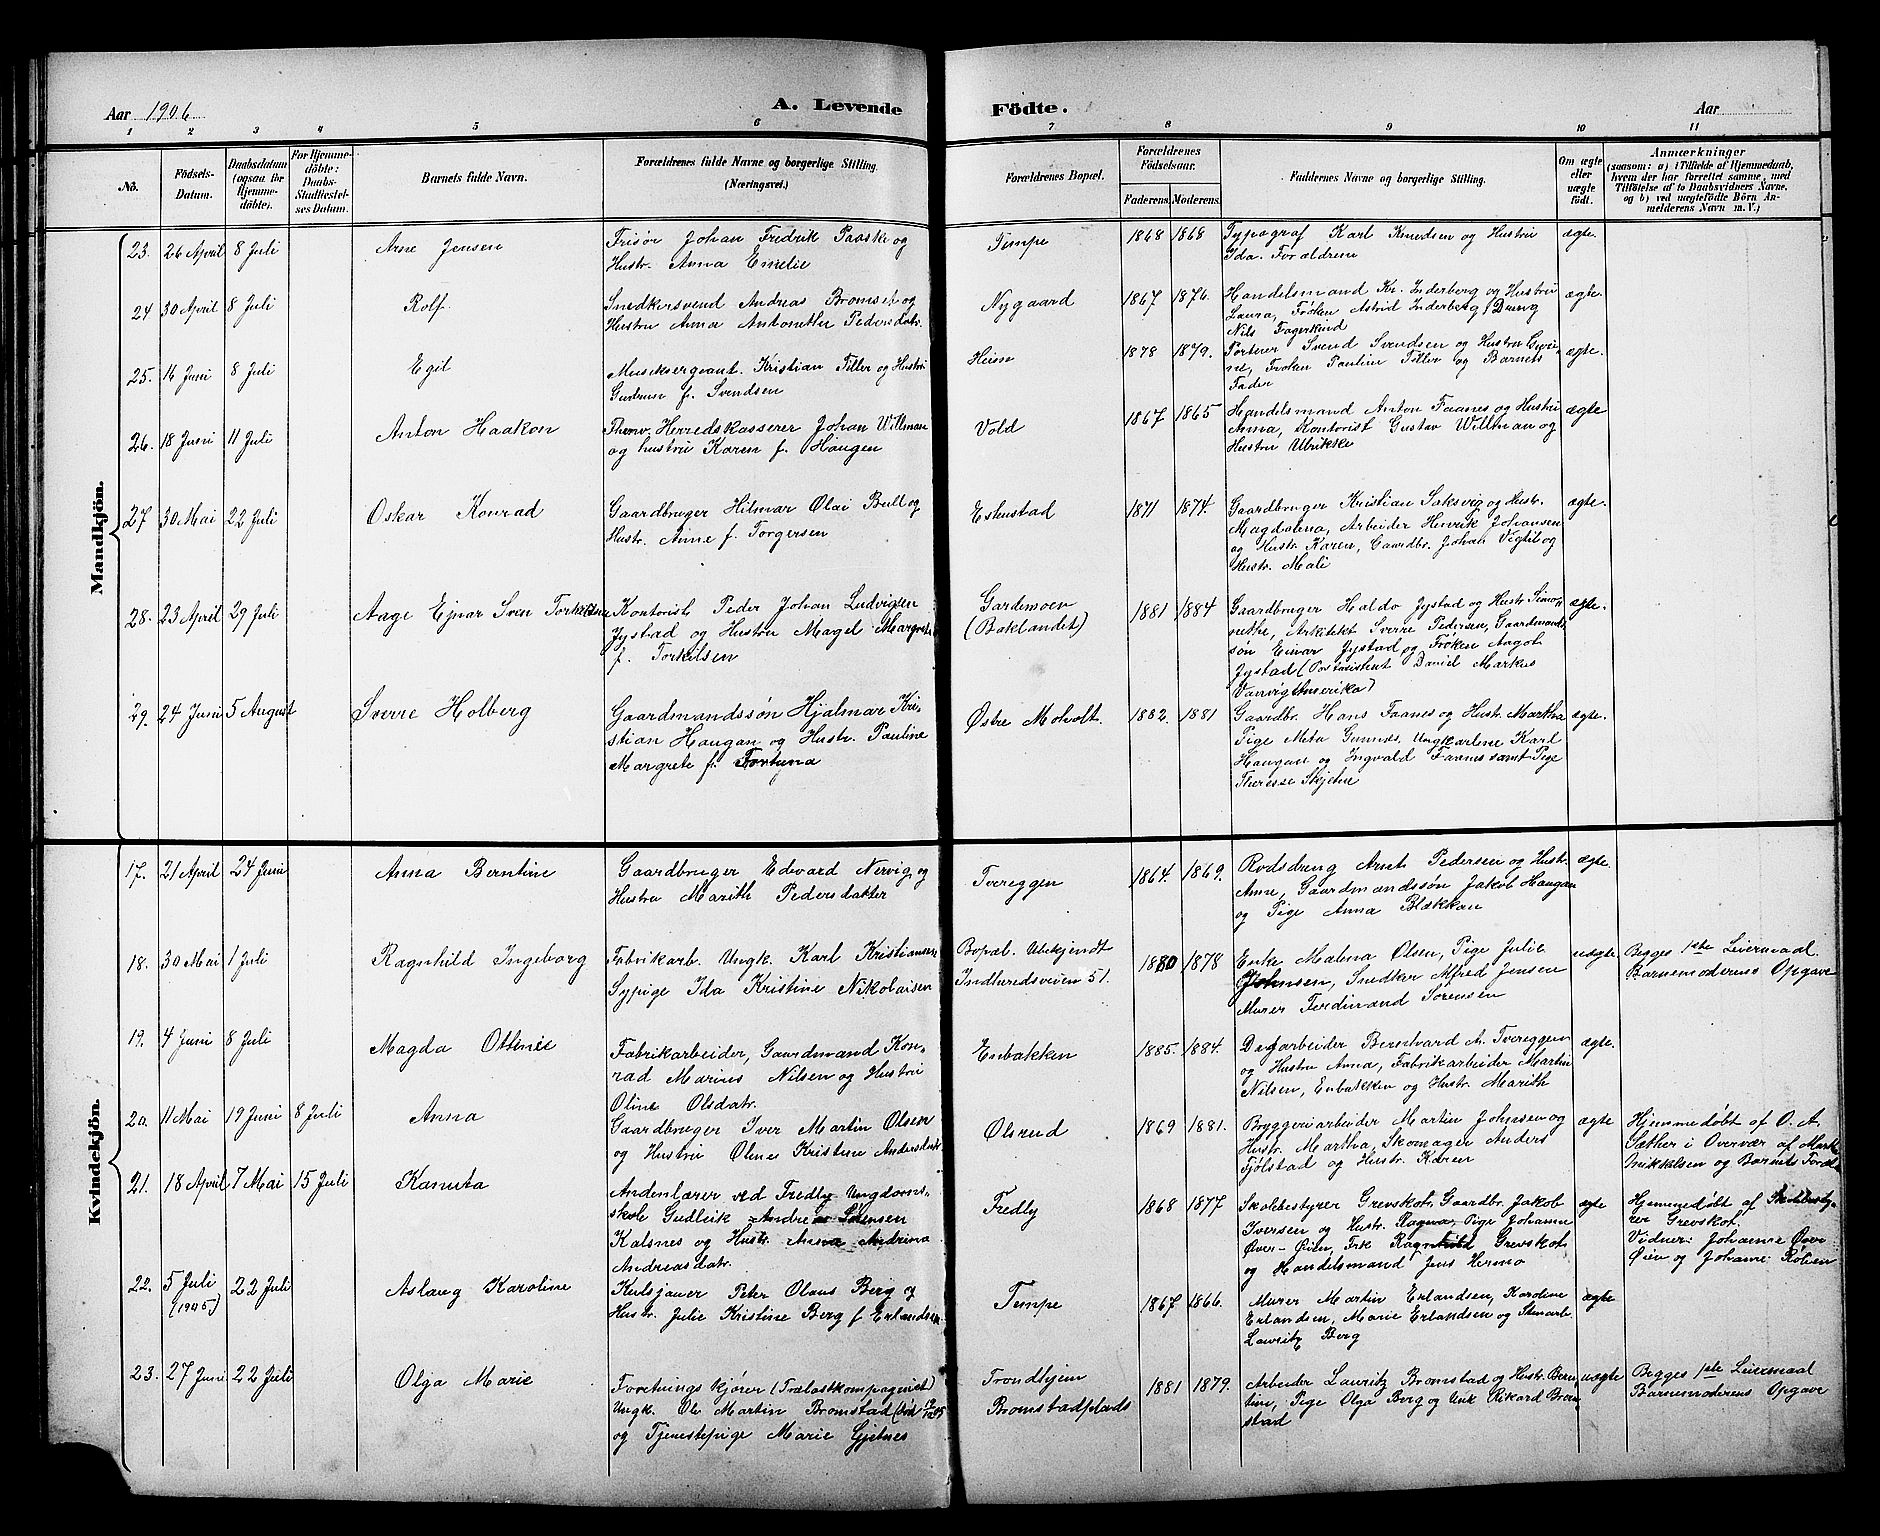 Aar 1906
A. Levende
Födte.
Aar
1 2 3 4 5 6 7 8 9 10 11
No.
Födsels-
Datum.
Daabsdatum
(ogsaa for
Hjemme-
döbte).
For Hjemme-
döbte:
Daabs-
Stadfæstel-
ses Datum.
Barnets fulde Navn.
Forældrenes fulde Navne og borgerlige Stilling.
(Næringsvei.)
Forældrenes Bopæl.
Forældrenes
Födselsaar.
Faderens. Moderens.
Faddernes Navne og borgerlige Stilling.
Om ægte
eller
uægte
födt.
Anmærkninger
(saasom: a) i Tilfælde af Hjemmedaab,
hvem der har forrettet samme, med
Tilföielse af to Daabsvidners Navne,
og b) ved uægtefödte Börn An-
melderens Navn m. V.)
Mandkjön.
23. 26 April 8 Juli
Arne Jensen
Frisör Johan Fredrik Paaske og
Hustr. Anna Emelie
Tempe
1868 1868
Typograf Karl Knudsen og Hustru
Ida. Forældrene
ægte.
24 30 April 8 Juli
Rolf
Snedkersvend Andreas Bromset og
Hustru Anna Antonette Pedersdatr.
Nygaard
1867 1876.
Handelsmand Kr. Inderberg og Hustru
Laura, Fröken Astrid Inderberg, Dreng
Nils Fagerkind
ægte.
25. 14 Juni 8 Juli
Egil
Musiksergeant. Kristian Tiller og Hustru
Gudrun f. Svendsen
Heim
1878 1879.
Portener Svend Svendsen og Hustru
Fröken Pauline Tiller og Barnets
Fader
ægte.
26. 18 Juni 11 Juli
Anton Haakon
Herredskasserer Johan Willman
og hustru Karen f. Haugen
Vold
1867 1865
Handelsmand Anton Faanes og Hustru
Anna, Kontorist Gustav Willman og
Hustru Ulrikke
ægte
27 30 Mai 22 Juli
Oskar Konrad
Gaardbruger Hilmar Olai Bull og
Hustr. Anne f. Torgersen
Eskustad
1871 1874.
Gaardbruger Kristian Saksvig og Hustr.
Magdalena, Arbeider Henrik Johansen
og Hustr. Karen, Gaardbr. Johan Vigtil og
Hustr. Mali
ægte.
28. 23 April 29 Juli
Aage Ejnar Sven Torkildsen
Kontorist Peder Johan Ludvigsen
Jystad og Hustru Magel Margrete
f. Torkilsen
Gardemoen
(Baklandet)
1881 1884
Gaardbruger Haldo Jystad og Hustr. Simo-
nethe, Arkitekt Sverre Pedersen, Gaardmands-
sön Einar Jystad og Fröken Aagot
Jystad (Postassistent David Markus
Vanvig Amerika)
ægte.
29. 24 Juni 5 August
Sverre Holberg
Gaardmandssön Hjalmar Kri-
stian Haugan og Hustr. Pauline
Margrete f. Fortuna
Østre Moholt.
1882. 1881
Gaardbr. Hans Faanes og Hustr. Martha
Pige Meta Gunnes, Ungkarlene Karl
Haugan og Ingvald Faanes samt Pige
Therese Stjehn
ægte.
Kvindekjön.
17. 21 April 24 Juni
Anna Berntine
Gaardbruger Edevard Nervig og
Hustru Marith Pedersdatter
Tvereggen
1864. 1869.
Rodsdreng Arnt Pedersen og Hustr.
Anne, Gaardmandssön Jakob Haugan
og Pige Anna Blækkan
ægte.
18. 30 Mai 1 Juli
Ragnhild Ingeborg
Fabrikarb. Ungk. Karl Kristiansen
Sypige Ida Kristine Nikolaisen
Bopæl. Ubekjendt
Indherredsveien 51.
1880 1878
Enke Malena Olsen, Pige Julie
Johnsen, Snedker Alfred Jensen
Murer Ferdinand Sörensen
uægte
Begges 1ste Leiermaal
Barnemoderens Opgave
19. 4 Juni 8 Juli
Magda Ottinie
Fabrikarbeider, Gaardmand Kon-
rad Marius Nilsen og Hustru
Oline Olsdatr.
Enbakken
1885. 1884.
Dagarbeider Berntvard A. Tvereggen
og Hustru Anna, Fabrikarbeider Martin
Nilsen, Enbakken og Hustr. Marith
ægte.
20. 11 Mai 19 Juni 8 Juli
Anna
Gaardbruger Iver Martin Olsen
og Hustru Oline Kristine Andersdatr.
Ølsrud
1869 1881.
Bryggeriarbeider Martin Johnsen og
Hustr. Martha, Skomager Anders
Fjölstad og Hustr. Karen
ægte
Hjemmedöbt af O. A.
Sæther i Overvær af Mark
Mikkelsen og Barnets Foræl.
21. 18 April 7 Mai 15 Juli
Kanuta
Andenlærer ved Fredly Ungdoms-
skole Gudleik Andreas Sörensen
Kalsnes og Hustr. Anna Andrina
Andreasdatr.
Fredly
1868 1877
Skolebestyrer Grevskot, Gaardbr. Jakob
Iversen og Hustr. Ragna, Pige Johanne
Øver-Øien, Frk Ragnhild Grevskot
og Handelsmand Jens Hermo
ægte
Hjemmedöbt af Skolebesty-
rer Grevskot.
Vidner: Johanne Øver
Øien og Johanne Rölsen
22. 5 Juli (1905) 22 Juli
Aslaug Karoline
Kulsjauer Peter Olaus Berg og
Hustr. Julie Kristine Berg f Erlandsen
Tempe
1867 1866.
Murer Martin Erlandsen, Karoline
Erlandsen, Marie Erlandsen og Stenarb.
Lauritz Berg
ægte
23. 27 Juni 22 Juli
Olga Marie
Foretnings kjører (Trælastkompagniet)
Ungk. Ole Martin Bromstad
og Tjenestepige Marie Gjetnes
Trondhjem
Bromstadplads
1881 1879.
Arbeider Lauritz Bromstad og Hustr. Bern-
tine, Pige Olga Berg og Unk Rikard Brom-
stad
uægte
Begges 1ste Leiermaal
Barnemoderens Opgave